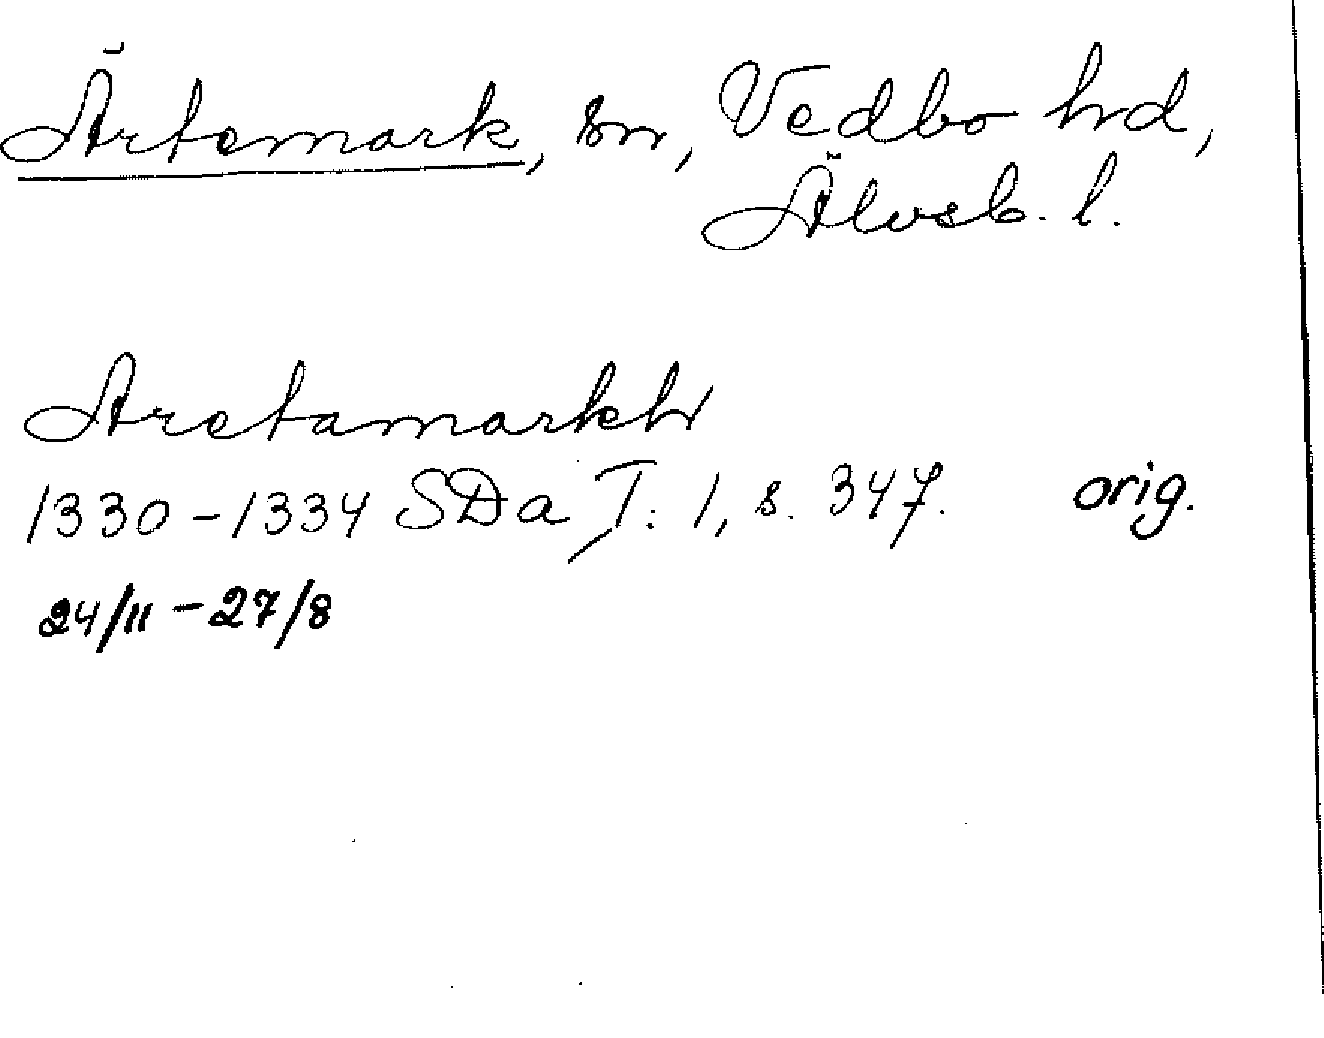 Ärtemark, sn, Vedbo hd,
Älvsb. l.
Aretamarkh
1330-1334 SDa I: 1, s. 347. orig.
24/11 - 27/8